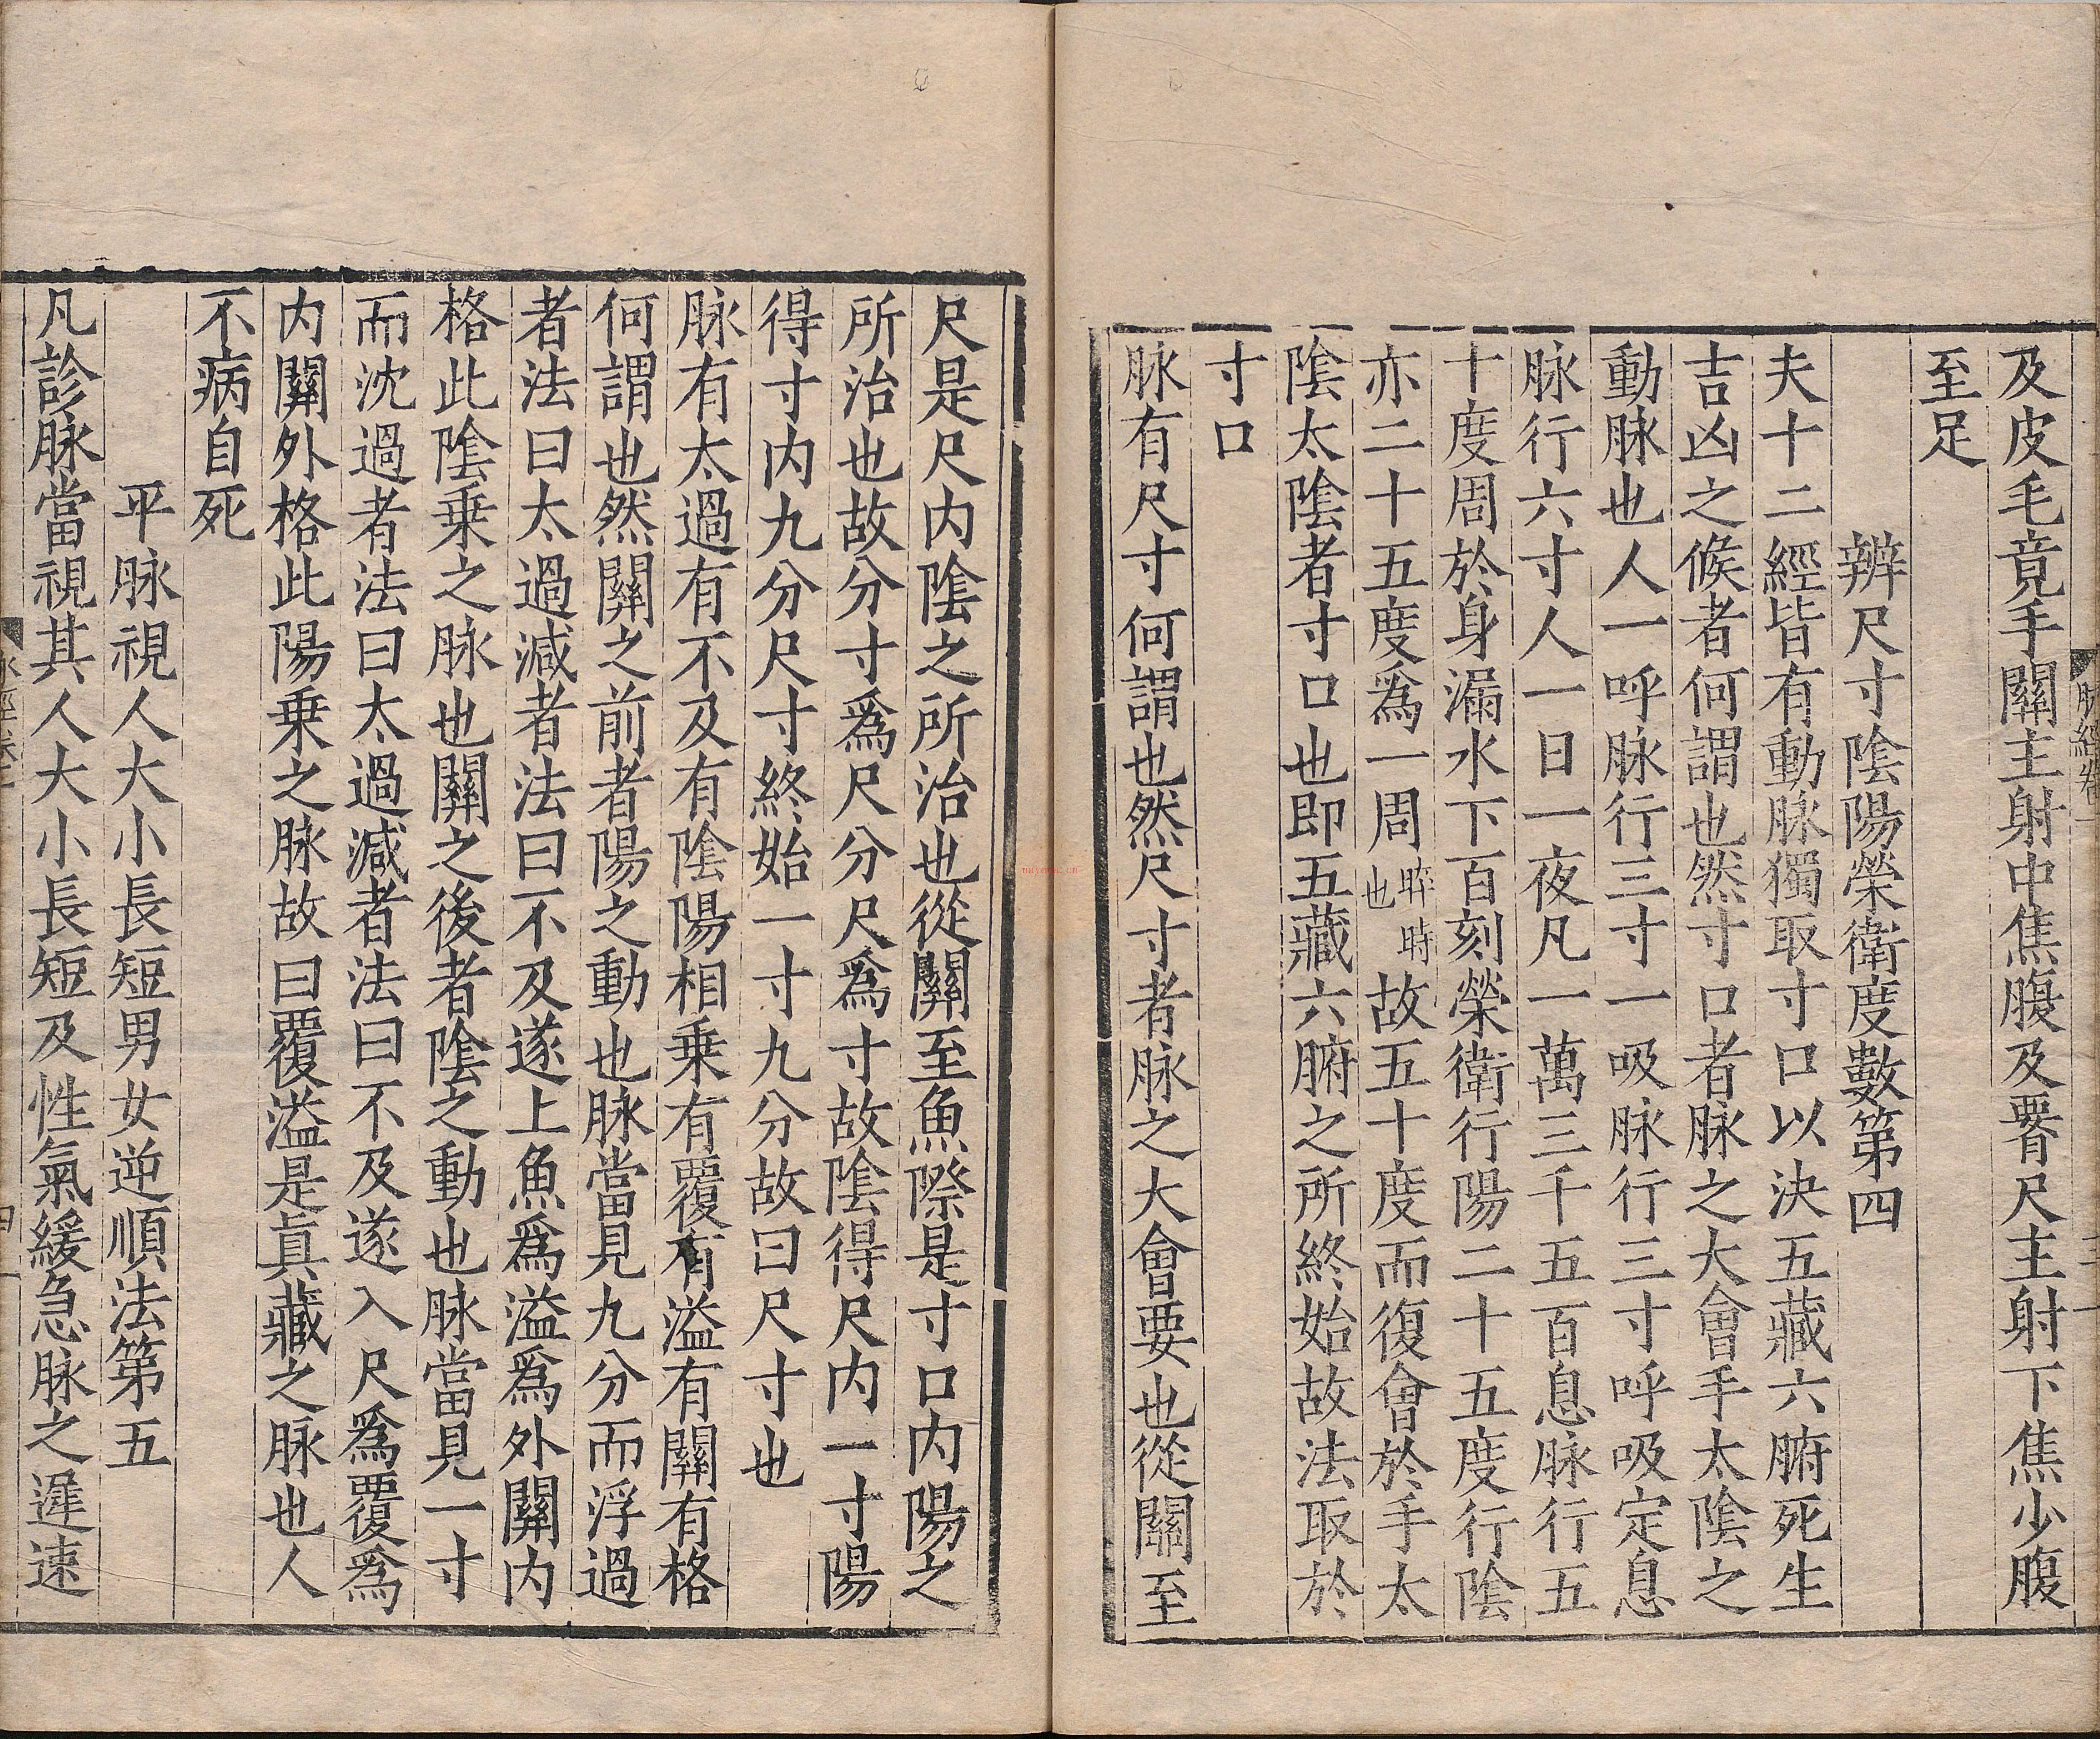 及皮毛竟手關主射中焦腹及䐃尺主射下焦少腹
至足
辨尺寸陰陽榮衛度數第四
夫十二經皆有動脉獨取寸口以決五藏六腑死生
吉凶之候者何謂也然寸口者脉之大會手太陰之
動脉也人一呼脉行三寸一吸脉行三寸呼吸定息
脉行六寸人一日一夜凡一萬三千五百息脉行五
十度周於身漏水下百刻榮衛行陽二十五度行陰
亦二十五度爲一周晬時也故五十度而復會於手太
陰太陰者寸口也即五藏六腑之所終始故法取於
寸口
脉有尺寸何謂也然尺寸者脉之大會要也從關至
尺是尺内陰之所治也從關至魚際是寸口内陽之
所治也故分寸爲尺分尺爲寸故陰得尺内一寸陽
得寸内九分尺寸終始一寸九分故曰尺寸也
脉有太過有不及有陰陽相乗有覆有溢有關有格
何謂也然關之前者陽之動也脉當見九分而浮過
者法曰太過减者法曰不及遂上魚爲溢爲外關内
格此陰乗之脉也關之後者陰之動也脉當見一寸
而沈過者法曰太過减者法曰不及遂入尺爲覆爲
内關外格此陽乗之脉故曰覆溢是真藏之脉也人
不病自死
平脉視人大小長短男女逆順法第五
凡診脉當視其人大小長短及性氣緩急脉之遲速